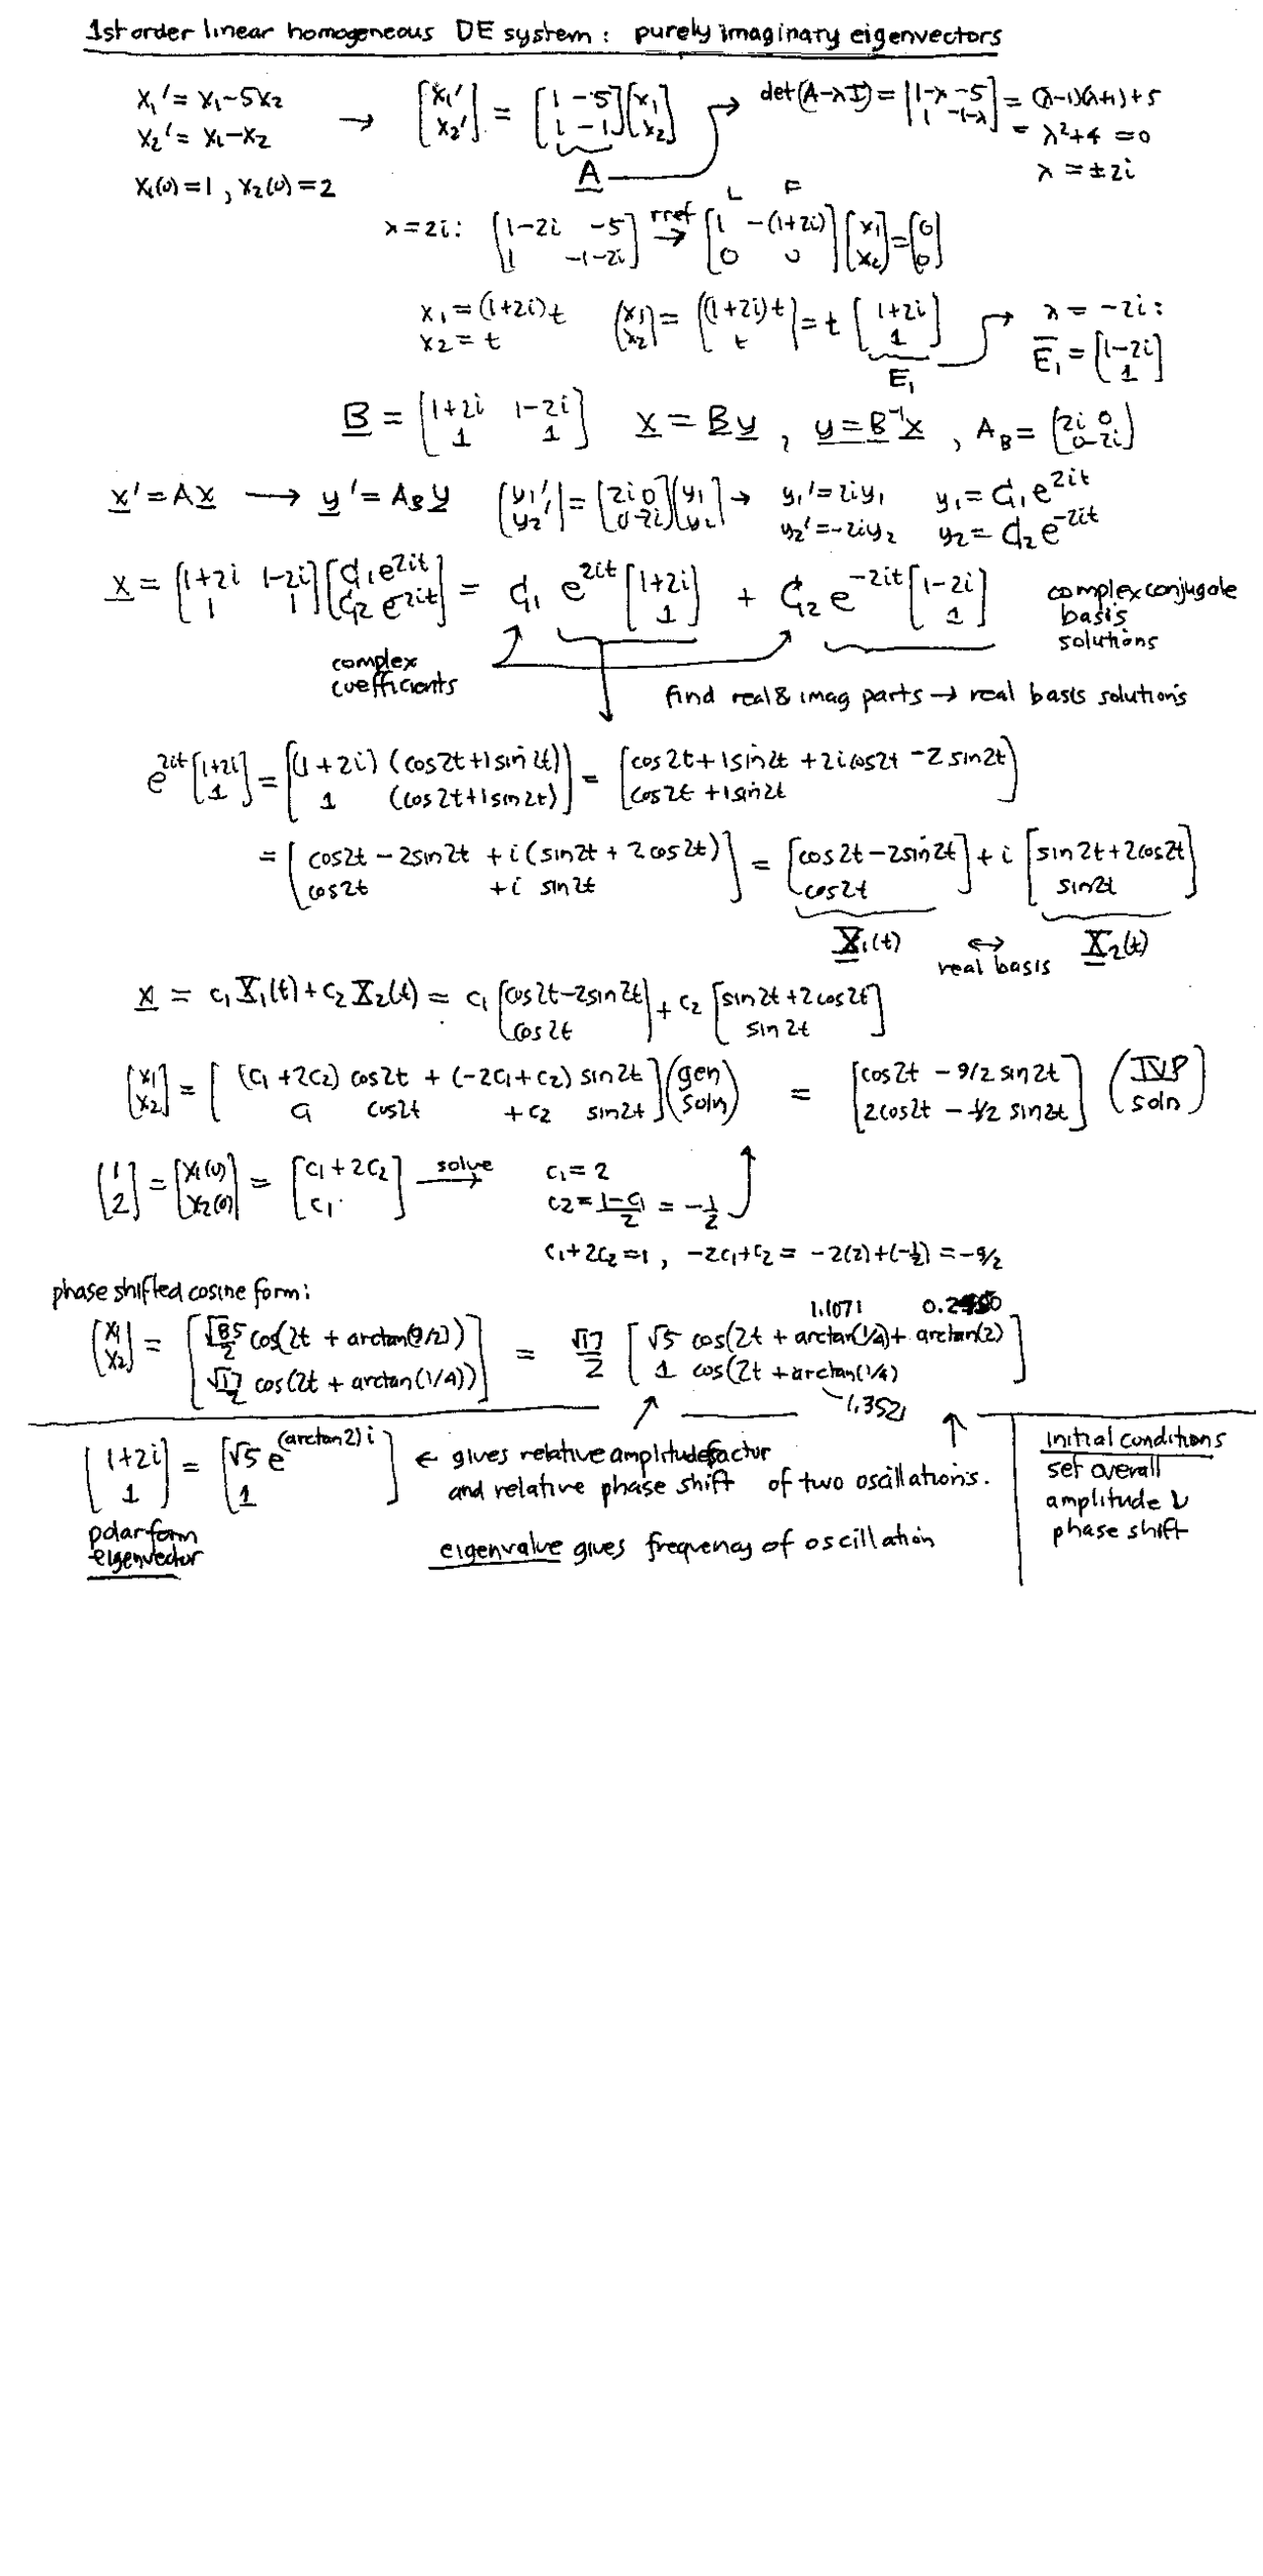 1st order linear homogeneous DE system: purely imaginary eigenvectors
x₁' = x₁-5x₂
x₂' = x₁-x₂
x₁(0)=1, x₂(0)=2
→ [x₁' x₂'] = [1 -5; 1 -1][x₁ x₂]
A
det(A-λI) = |1-λ -5; 1 -1-λ| = (λ-1)(λ+1)+5
= λ²+4 = 0
λ = ±2i
L F
λ=2i: [1-2i -5; 1 -1-2i] rref → [1 -(1+2i); 0 0][x₁ x₂] = [0 0]
x₁ = (1+2i)t
x₂ = t
[x₁ x₂] = [(1+2i)t; t] = t [1+2i; 1]
E₁
λ = -2i:
E̅₁ = [1-2i; 1]
B = [1+2i 1-2i; 1 1] x = By, y = B⁻¹x, A_B = [2i 0; 0 -2i]
x' = Ax → y' = A_B y [y₁' y₂'] = [2i 0; 0 -2i][y₁ y₂] → y₁' = 2iy₁ y₁ = C₁e^{2it}
y₂' = -2iy₂ y₂ = C₂e^{-2it}
x = [1+2i 1-2i; 1 1][C₁e^{2it}; C₂e^{-2it}] = C₁ e^{2it} [1+2i; 1] + C₂ e^{-2it} [1-2i; 1]
complex conjugate
basis
solutions
complex
coefficients
find real & imag parts → real basis solutions
e^{2it}[1+2i; 1] = [(1+2i)(cos2t+i sin2t); 1 (cos2t+i sin2t)] = [cos2t+i sin2t+2i cos2t-2 sin2t; cos2t+i sin2t]
= [cos2t-2sin2t +i(sin2t+2cos2t); cos2t +i sin2t] = [cos2t-2sin2t; cos2t] + i [sin2t+2cos2t; sin2t]
X₁(t) ↔ X₂(t)
real basis
x = c₁X₁(t)+c₂X₂(t) = c₁ [cos2t-2sin2t; cos2t] + c₂ [sin2t+2cos2t; sin2t]
[x₁ x₂] = [(c₁+2c₂) cos2t + (-2c₁+c₂) sin2t; c₁ cos2t +c₂ sin2t] (gen soln) = [cos2t - 9/2 sin2t; 2cos2t - 1/2 sin2t] (IVP soln)
[1; 2] = [x₁(0); x₂(0)] = [c₁+2c₂; c₁] solve →
c₁ = 2
c₂ = (1-c₁)/2 = -1/2
c₁+2c₂=1, -2c₁+c₂ = -2(2)+(-1/2) = -9/2
phase shifted cosine form:
1.1071
[x₁ x₂] = [√85/2 cos(2t + arctan(9/2)); √17/2 cos(2t + arctan(1/4))] = √17/2 [√5 cos(2t + arctan(1/4)+ arctan(2)); 1 cos(2t + arctan(1/4)]
1.3521
[1+2i; 1] = [√5 e^{(arctan2)i}; 1]
← gives relative amplitude factor
and relative phase shift of two oscillations.
polar form
eigenvector
eigenvalue gives frequency of oscillation
initial conditions
set overall
amplitude &
phase shift